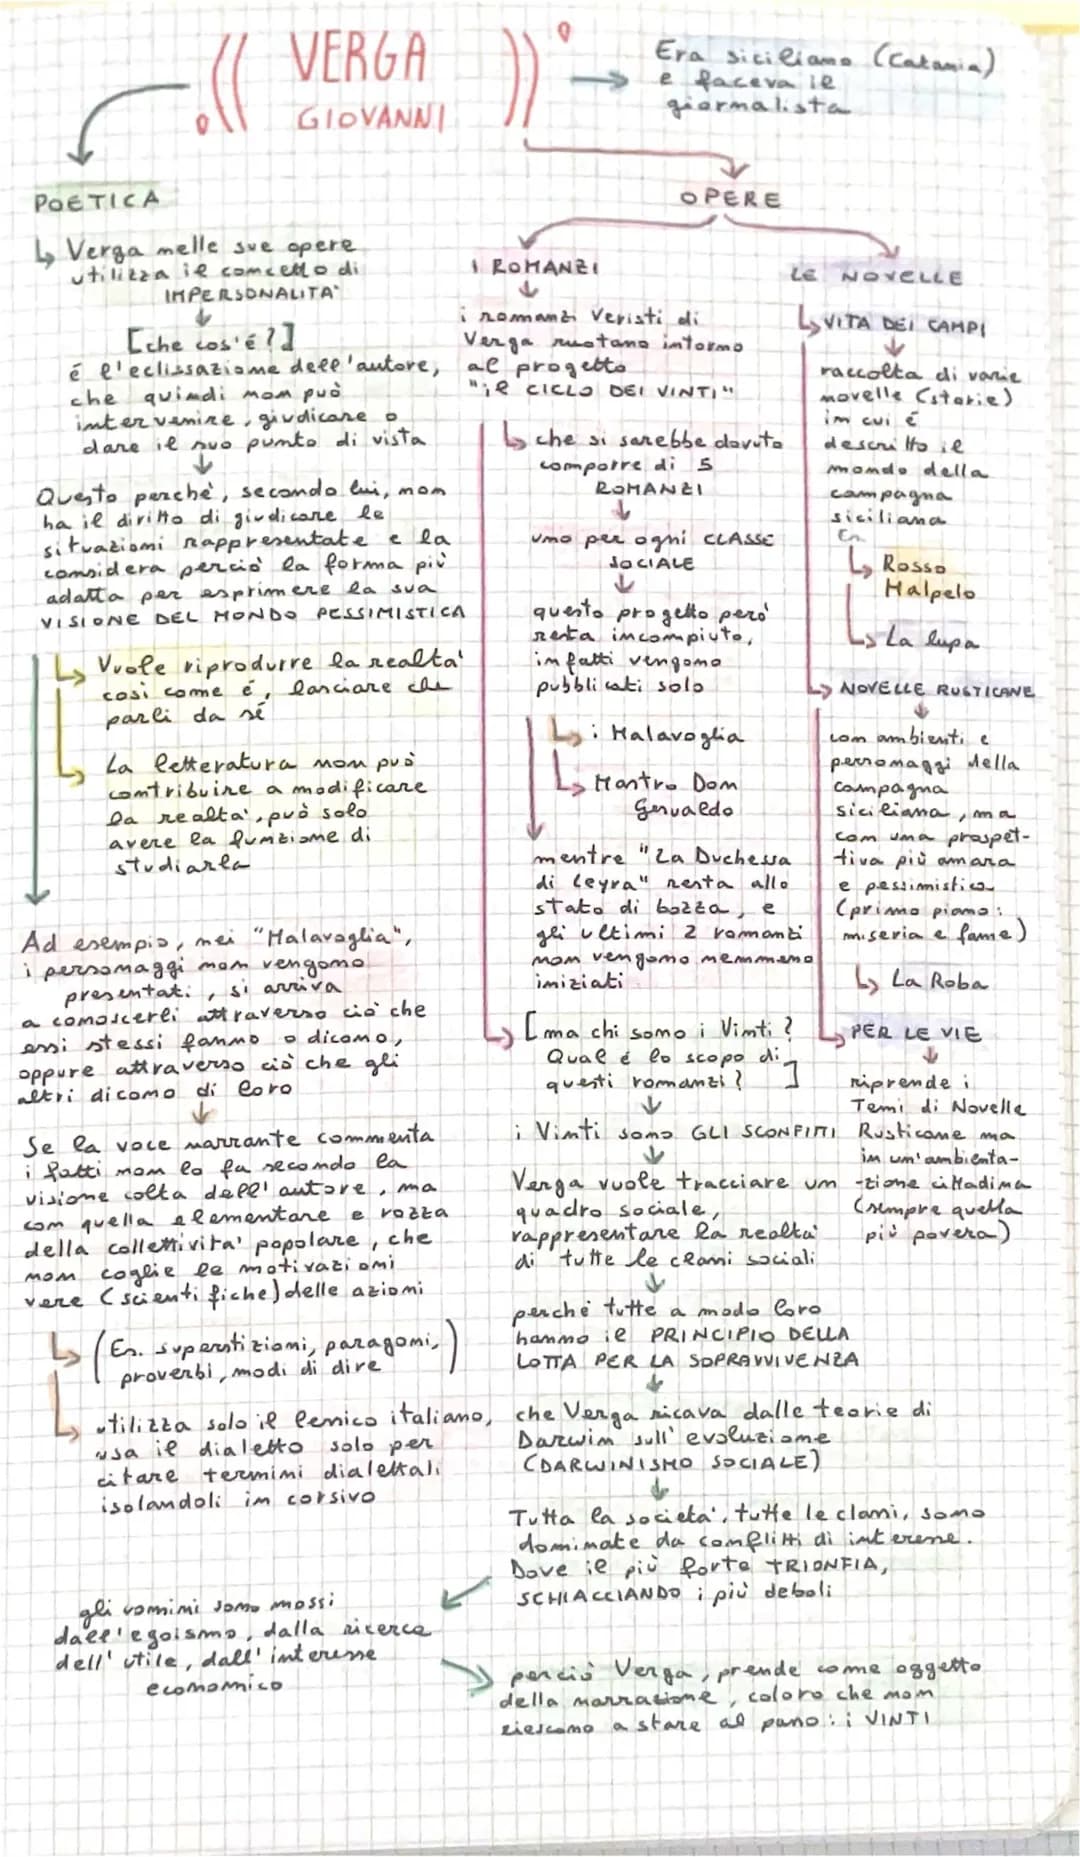 VERGA
GIOVANNI
Era siciliano (Catania)
e faceva il
giornalista
POETICA
Verga nelle sue opere
utilizza il concetto di
IMPERSONALITA'
[che cos'é?]
é l'eclissazione dell'autore,
che quindi non può
intervenire, giudicare o
dare il suo punto di vista
Questo perché, secondo lui, non
ha il diritto di giudicare le
situazioni rappresentate e la
considera perciò la forma più
adatta per esprimere la sua
VISIONE DEL MONDO PESSIMISTICA
Vuole riprodurre la realta'
così come é, lasciare che
parli da sé
La letteratura non può
contribuire a modificare
la realta', può solo
avere la funzione di
studiarla
Ad esempio, nei "Malavoglia",
i personaggi non vengono
presentati, si arriva
a conoscerli attraverso ciò che
essi stessi fanno o dicono,
oppure attraverso ciò che gli
altri dicono di loro
Se la voce narrante commenta
i fatti non lo fa secondo la
visione colta dell'autore, ma
con quella elementare e rozza
della collettivita' popolare, che
non coglie le motivazioni
vere (scientifiche) delle azioni
(Es. superstizioni, paragoni,
proverbi, modi di dire)
utilizza solo il lessico italiano,
usa il dialetto solo per
citare termini dialettali
isolandoli in corsivo
OPERE
I ROMANZI
i romanzi Veristi di
Verga ruotano intorno
al progetto
"il CICLO DEI VINTI"
che si sarebbe dovuto
comporre di 5
ROMANZI
uno per ogni CLASSE
SOCIALE
questo progetto però
resta incompiuto,
infatti vengono
pubblicati solo
i Malavoglia
Mastro Don
Gesualdo
mentre "La Duchessa
di Leyra" resta allo
stato di bozza, e
gli ultimi 2 romanzi
non vengono nemmeno
iniziati
[ma chi sono i Vinti?
Qual é lo scopo di
questi romanzi?]
i Vinti sono GLI SCONFITTI
Verga vuole tracciare un
quadro sociale,
rappresentare la realta'
di tutte le classi sociali
perché tutte a modo loro
hanno il PRINCIPIO DELLA
LOTTA PER LA SOPRAVVIVENZA
che Verga ricava dalle teorie di
Darwin sull'evoluzione
(DARWINISMO SOCIALE)
Tutta la societa', tutte le classi, sono
dominate da conflitti di interesse.
Dove il più forte TRIONFIA,
SCHIACCIANDO i più deboli
gli uomini sono mossi
dall'egoismo, dalla ricerca
dell'utile, dall'interesse
economico
perciò Verga, prende come oggetto
della narrazione, coloro che non
riescono a stare al passo: i VINTI
LE NOVELLE
VITA DEI CAMPI
raccolta di varie
novelle (storie)
in cui é
descritto il
mondo della
campagna
siciliana
Es.
Rosso
Malpelo
La lupa
NOVELLE RUSTICANE
con ambienti e
personaggi della
campagna
siciliana, ma
con una prospet-
tiva più amara
e pessimistica
(primo piano:
miseria e fame)
La Roba
PER LE VIE
riprende i
Temi di Novelle
Rusticane ma
in un'ambienta-
-zione cittadina
(sempre quella
più povera)